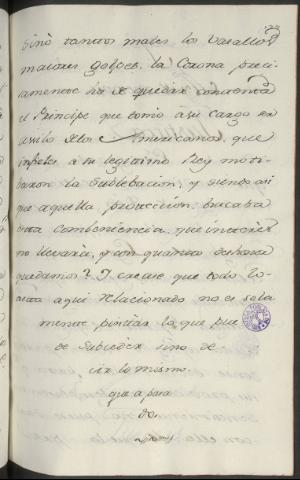 sino tantos males los Vasallos
maiores golpes. la Corona preci-
samente ha de quedar contenta
el Principe que tomó a su cargo en
asilo de los Americanos, que
infieles a su legitimo Rey moti-
baron la sublebacion, y siendo asi
que aquella proteccion buscaba
esta combeniencia, que interes
no llevaria, y con quanto
quedamos? Y cacase que todo lo
asta aqui relacionado no es sola
mente pintar lo que pue
de subceder sino de
cir lo mismo.
que a para
do.